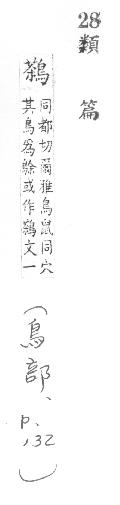 28 類篇
鷋
同都切爾雅鳥鼠同穴
其鳥爲鵌或作文一
(鳥部、p.132)